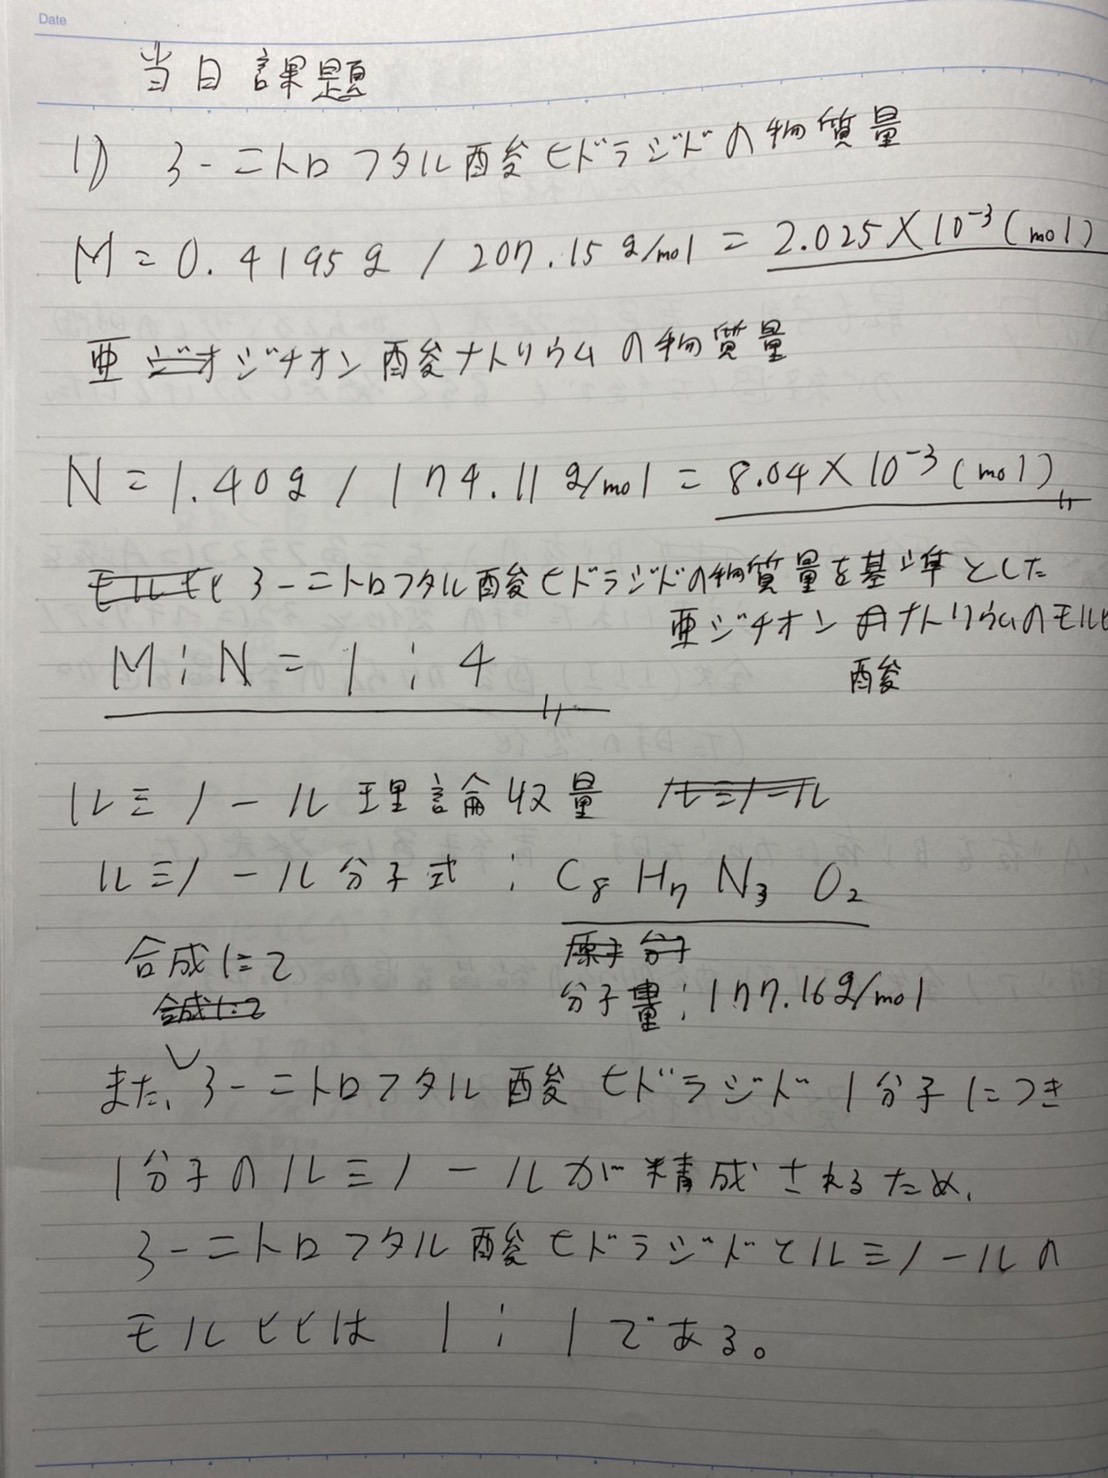 Date
当日課題
1) 3-ニトロフタル酸ヒドラジドの物質量
M = 0.4195g / 207.15 g/mol = 2.025×10⁻³ (mol)
亜ジチオン酸ナトリウムの物質量
N = 1.40g / 174.11 g/mol = 8.04×10⁻³ (mol)
3-ニトロフタル酸ヒドラジドの物質量を基準とした
亜ジチオン酸ナトリウムのモル比
M : N = 1 : 4
ルミノール理論収量
ルミノール分子式 : C₈ H₇ N₃ O₂
合成にて
分子量 : 177.16g/mol
また、3-ニトロフタル酸ヒドラジド1分子につき
1分子のルミノールが精成されるため、
3-ニトロフタル酸ヒドラジドとルミノールの
モル比は 1 : 1である。